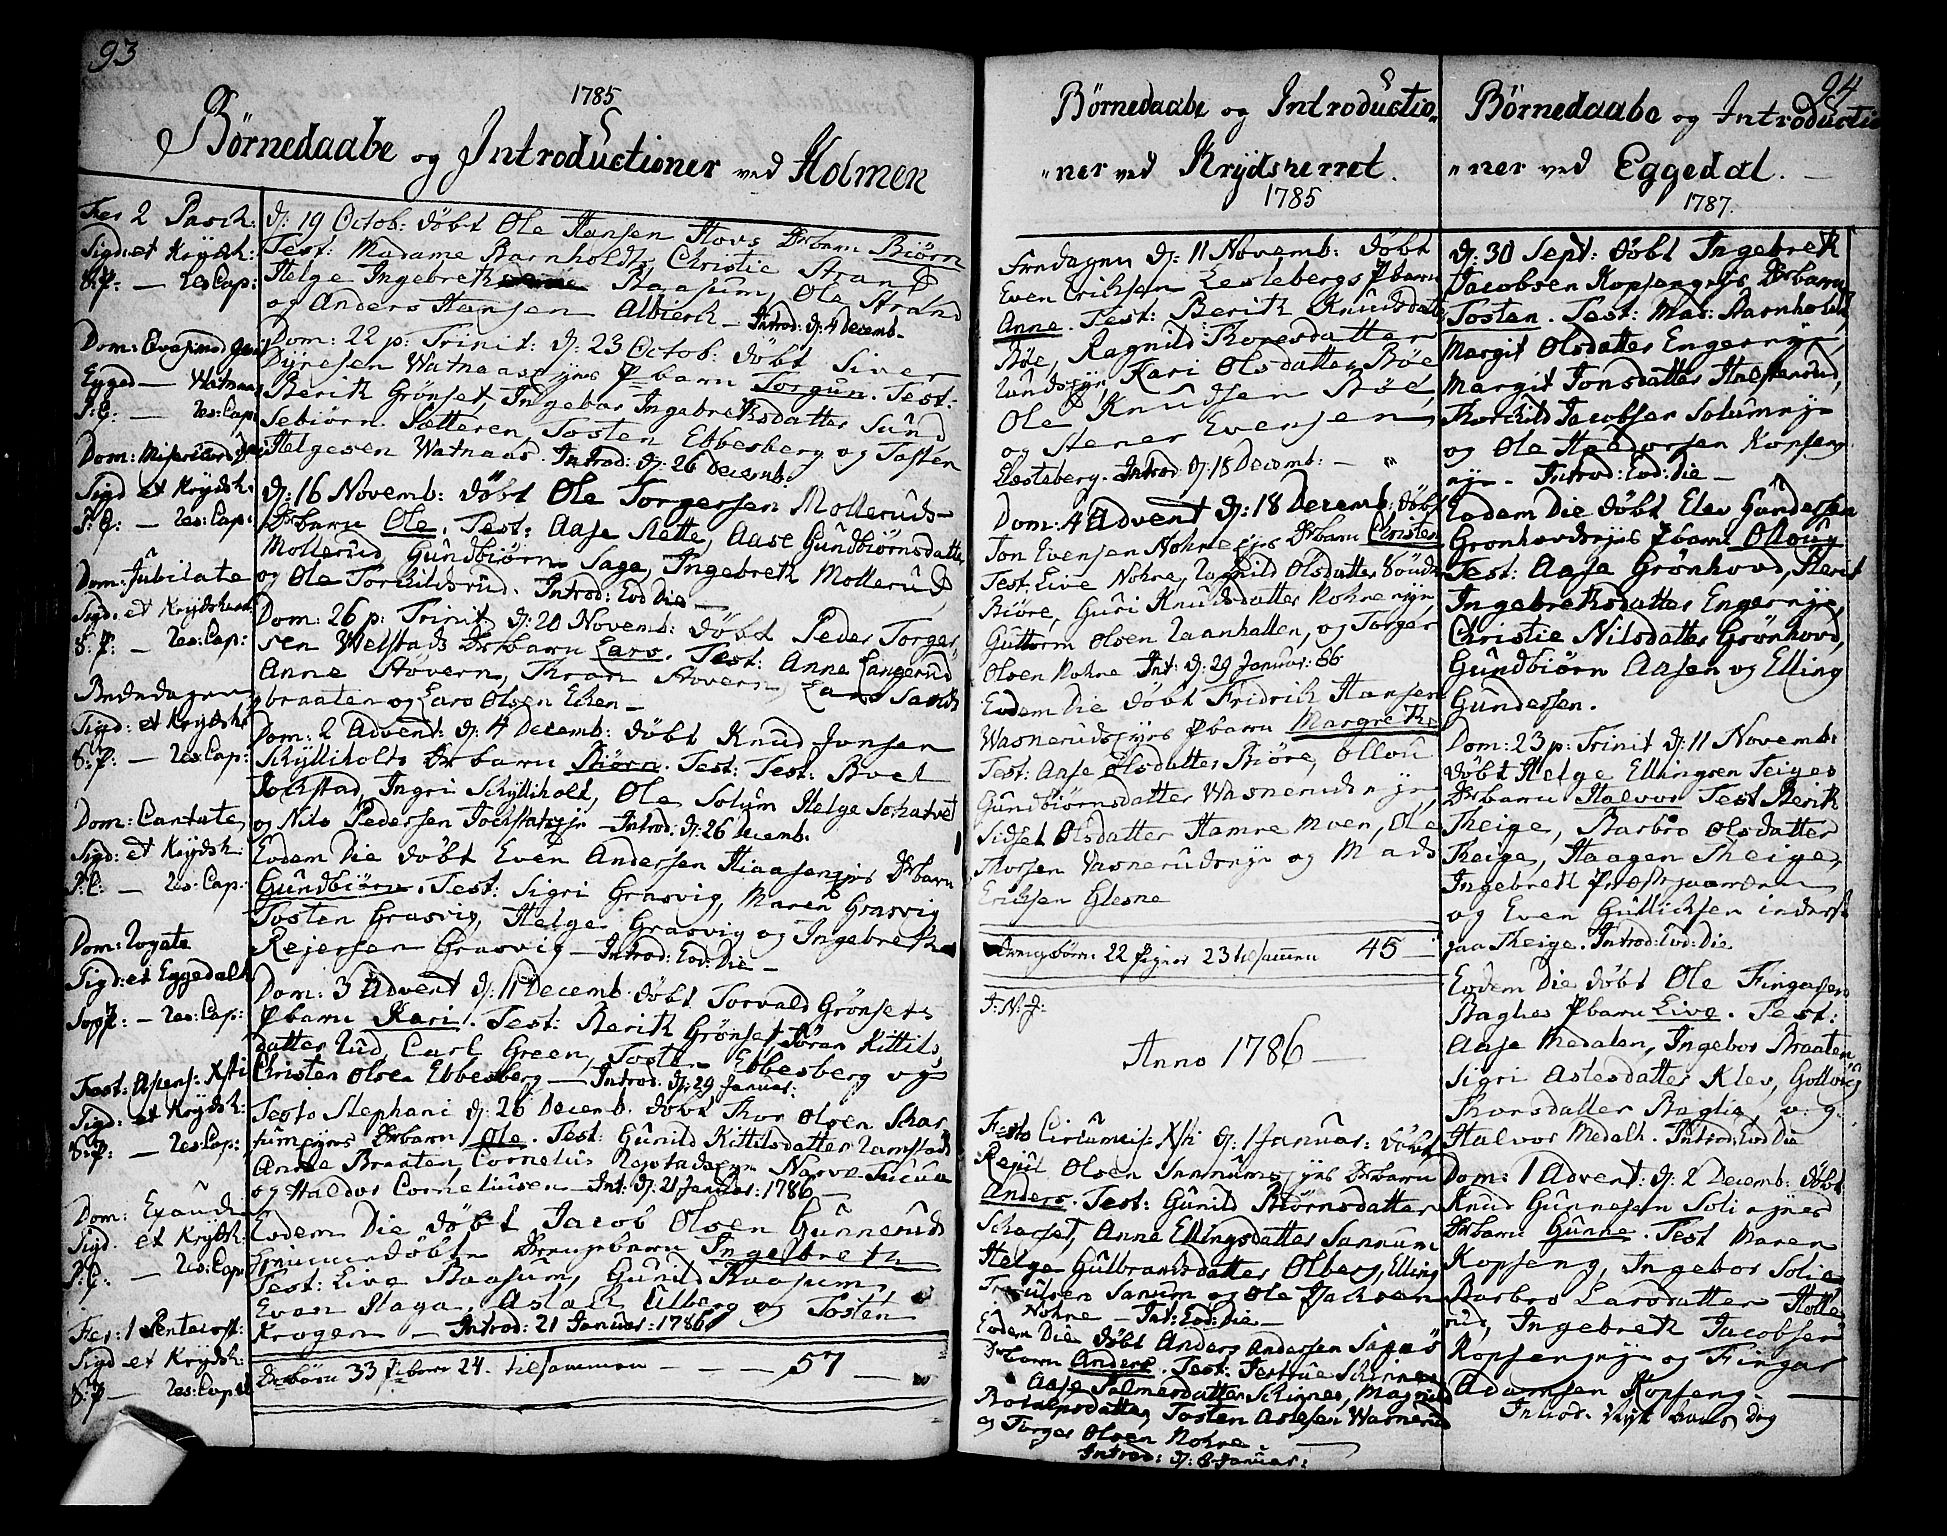 93
1785
Børnedaabe og Introductioner ved Holmen
Fer 2 Pasch:
Sigd: et Krydsh:
S:P: — Res:Cap:
Dom: Qvasimod
Egged — Watnaas
P:L: — Res:Cap:
Dom: Misericord
Sigd et Krydsh:
P:L: — Res:Cap:
Dom: Jubilate
Sigd: et Krydsher
S:P: — Res:Cap:
Bededagen
Sigd: et Krydsh:
S:P: — Res:Cap:
Dom: Cantate
Sigd: et Krydsh:
P:L: — Res:Cap:
Dom: Rogate
Sigd: et Eggedahl
— Res:Cap:
Fest: Ascens: Xsti
Sigd: et Krydsh:
S:P: — Res:Cap:
Dom: Exaudi
Sigd. et Krydsh:
P:L: — Res:Cap:
Fer: 1 Pentecost:
Sigd et Krydsh:
S:P — Res:Capel
d: 19 Octob: døbt Ole Hansen Hovs Drbarn Biørn
Test: Madame Barnholdt, Christie Strand
Helge Ingebrek Raasum, Ole Strand
og Anders Hansen Albierk — Introd: d: 4 Decemb.
Dom: 22 p: Trinit: d: 23 Octob: døbt Siver
Dÿresen Watnaas ejes Pbarn Torgun. Test:
Berith Grønset, Ingebor Ingebrethsdatter Sund
Sebiørn Sætteren Tosten Ebbesberg og Tosten
Helgesen Watnaas. Introd: d: 26 Decemb:
d: 16 Novemb: døbt Ole Torgersen Mollerüds
Drbarn Ole. Test: Aase Slette, Aase Gundbiørnsdatter
Mollerüd, Gündbiørn Sage, Ingebreth Mollerüd
og Ole Torkildsrüd. Introd: Eod Die —
Dom: 26 p: Trinit d: 20 Novemb: døbt Peder Torger
sen Welstads Drbarn Lars. Test: Anne Langerud
Anne Støvern, Thron Støvern, Lars Sands
braaten og Lars Olsen Eken —
Dom: 2 Advent: d: 4 Decemb: døbt Knud Jonsen
Skÿlliholts Drbarn Biørn. Test: Test: Boel
Jokstad, Ingri Skÿlliholt, Ole Solum Helge Solhatvet
og Nils Pedersen — Introd: d: 26 Decemb.
Eodem Die døbt Even Andersen Hiaasen ejes Drbarn
Gündbiørn. Test: Sigri Grasvig, Maren Grasvig
Tosten Grasvig, Helge Grasvig og Ingebreth
Rejersen Grasvig — Introd: Eod: Die —
Dom: 3 Advent d: 11 Decemb: døbt Torvald Grønsets
Pbarn Kari. Test: Berith Grønset, Jøran Kittils
datter Rud, Carl Green, Tosten Ebbesberg og
Christen Olsen Ebbesberg — Introd: d: 29 Januar.
Festo Stephani d: 26 Decemb. døbt Thor Olsen Skar
sum ejes Drbarn Ole. Test: Günild Kittilsdatter Ramstad
Anne Braaten, Cornelius
og Haldor Corneliusen — Int: d: 21 Januar: 1786 —
Eodem Die døbt Jacob Olsen Günnerüds
Drengebarn Ingebreth
Test: Live Raasum, Gunild Raasum,
Even Haga, Aslak Ulberg og Tosten
Krogen — Introd: 21 Januar: 1786
Drbørn 33 Pibørn 24. tilsammen — — — 57 —
Børnedaabe og Introductio„
„ner ved Krydsherret.
1785
Fredagen d: 11 Novemb: døbt
Even Eriksen Leslebergs Pbarn
Anne. Test: Berith Knudsdatter
Bøe, Ragnild Thoresdatter
Kari Olsdatter Bøe
Ole Knudsen Bøe,
og Stener Evensen
Introd: d: 18 Decemb: — „
Dom: 4 Advent d: 18 Decemb: døbt
Jon Evensen Nohre ejes Drbarn Christen
Test: Live Nohre, Ragnild Olsdatter
Biöre, Guri Knudsdatter Nohre ejen
Guttorm Olsen Raanhallen, og Torger
Olsen Nohre Int: d: 29 Januar: 86
Eodem Die døbt Fridrik Hansen
Wasnerud ejes Pbarn Margrethe
Test: Aase Olsdatter Biöre, Ollou
Gundbiørnsdatter Wasnerud ejer
Sidsel Olsdatter Hamre Moen, Ole
Thorsen Wasnerud ejn og Mads
Eriksen Glesne
Drengebørn: 22 Piger 23 tilsammen 45 —
I:N:J:
Anno 1786 —
Festo Circumcis: Xsti d: 1 Januar: døbt
Rejul Olsen Sannums ejes Drbarn
Anders. Test: Gunild Biørnsdatter
Skarset, Anne Ellingsdatter Sannum
Helge Gülbrandsdatter Olberg, Elling
Sanum og Ole Isachsen
Nohre — Int: Eod: Die —
Eodem Die døbt Anders Andersen
Drbarn Anders. Test: Jertrue Skinnes
Aase Salmersdatter Skinnes, Magnild
Rotulpsdatter, Tosten Aslesen Wasnerud
og Torger Olsen Nohre.
Introd: d: 8 Januar:
94
Børnedaabe og Introductio
„ner ved Eggedal. —
1787.
d: 30 Sept: døbt Ingebreth
Jacobsen Kopseng ejes Drbarn
Tosten. Test: Mad: Barnholdt,
Margit Olsdatter Engernye,
Margit Jonsdatter
Thorkild Jacobsen Solumnye
og Ole Haldorsen Kopseng
nye — Introd: Eod: Die —
Eodem Die døbt Elev Gündersen
Grønhovd ejes Pbarn Olloug
Test: Aase Grønhovd, Berit
Ingebrethsdatter Engernye,
Christie Nilsdatter Grønhovd,
Gündbiørn Aasen og Elling
Gündersen.
Dom: 23 p: Trinit d: 11 Novemb:
døbt Helge Ellingsen Teiges
Drbarn Halvor Test Berith
Theige, Barbro Olsdatter
Theige, Haagen Theige,
Ingebreth Præstegaarden
og Even Gullichsen inderst
paa Theige. Introd: Eod: Die
Eodem Die døbt Ole Fingarsen
Baglies Pbarn Live. Test:
Aase Medalen, Ingebor Braaten
Sigri Aslesdatter Klev, Gollaug
Thorsdatter Baglie, og
Halvor Medalh. Introd: Eod Die
Dom: 1 Advent: d: 2 Decemb: døbt
Knud Günnesen Soli ejes
Drbarn Günne. Test Maren
Kopseng, Ingebor Solie
Barbro Larsdatter Holle
rud, Ingebreth Jacobsen
Kopseng ejn og Fingar
Adamsen Kopseng.
Introd. dag